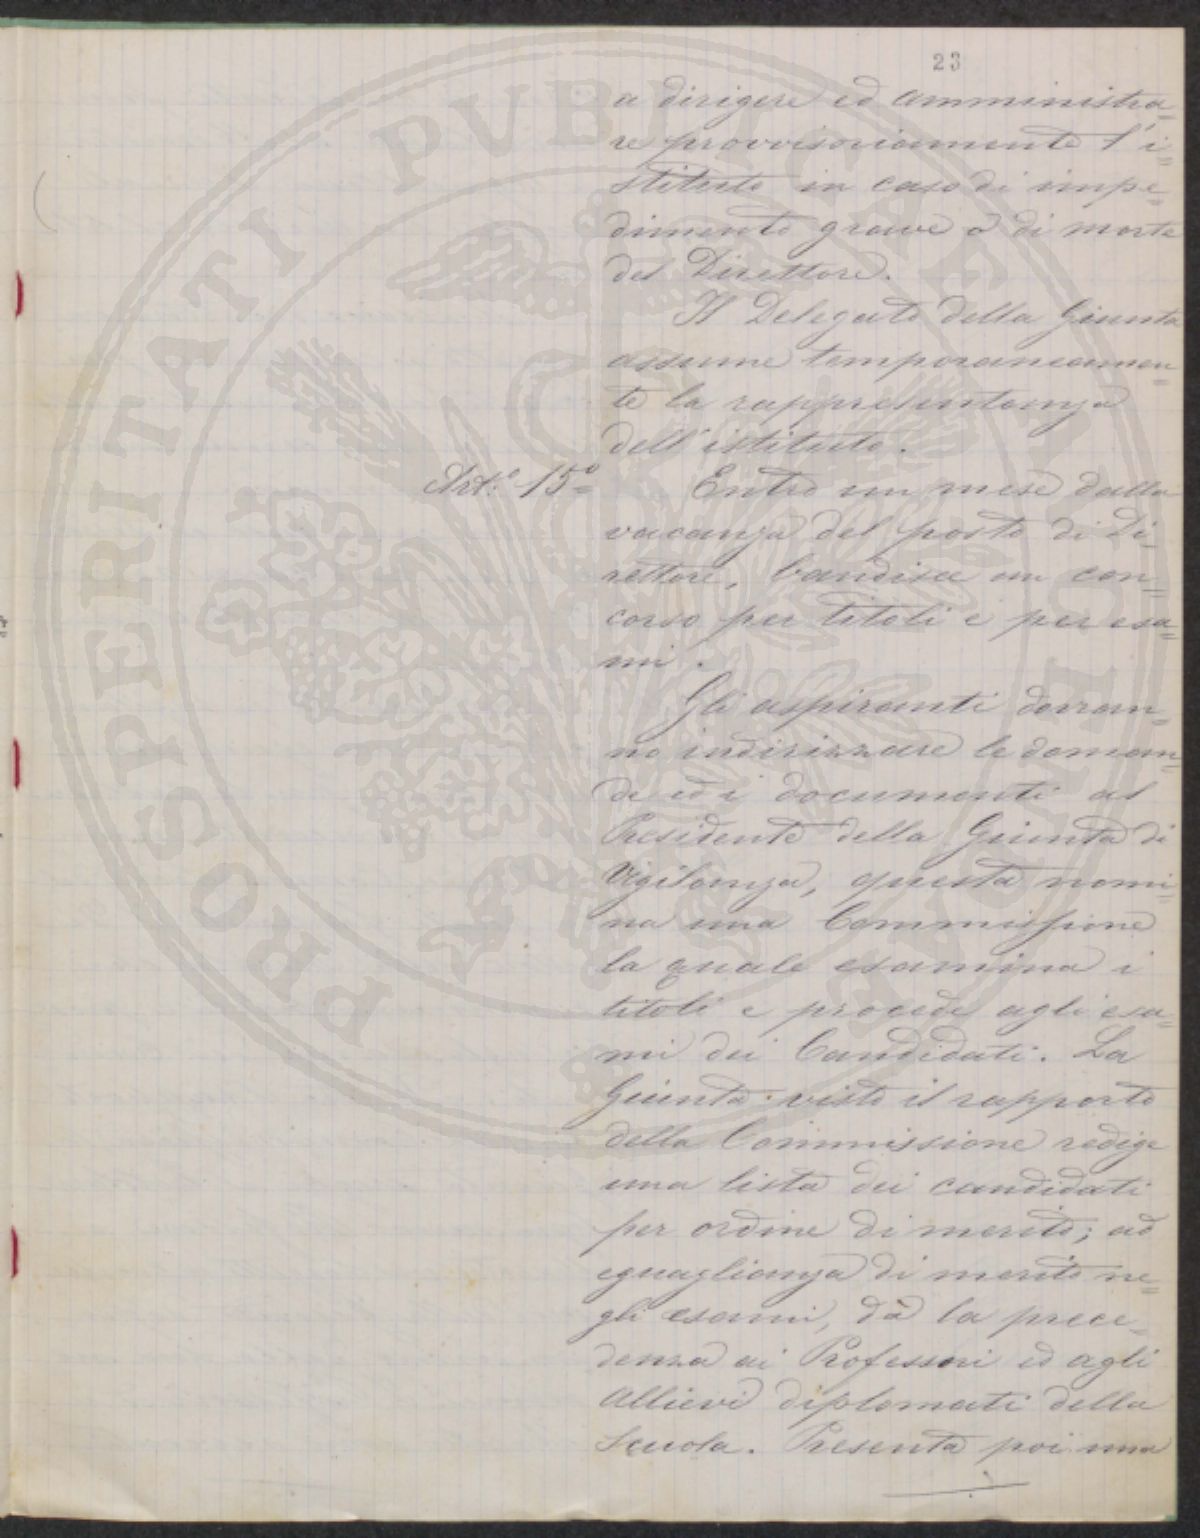 23
a dirigere ed amministra=
re provvisoriamente l'i=
stituto in caso di impe=
dimento grave o di morte
del Direttore.
Il Delegato della Giunta
assume temporaneamen=
te la rappresentanza
dell'istituto.
Art.° 15° Entro un mese dalla
vacanza del posto di Di=
rettore, bandisce un con=
corso per titoli e per esa=
mi.
Gli aspiranti dovran=
no indirizzare le doman=
de ed i documenti al
Presidente della Giunta di
Vigilanza, questa nomi
na una Commissione
la quale esamina i
titoli e procede agli esa=
mi dei Candidati. La
Giunta visto il rapporto
della Commissione redige
una lista dei candidati
per ordine di merito; ad
eguaglianza di merito ne=
gli esami, dà la prece=
denza ai Professori ed agli
Allievi diplomati della
Scuola. Presenta poi una
PROSPERITATI PVBLICAE AVGENDAE